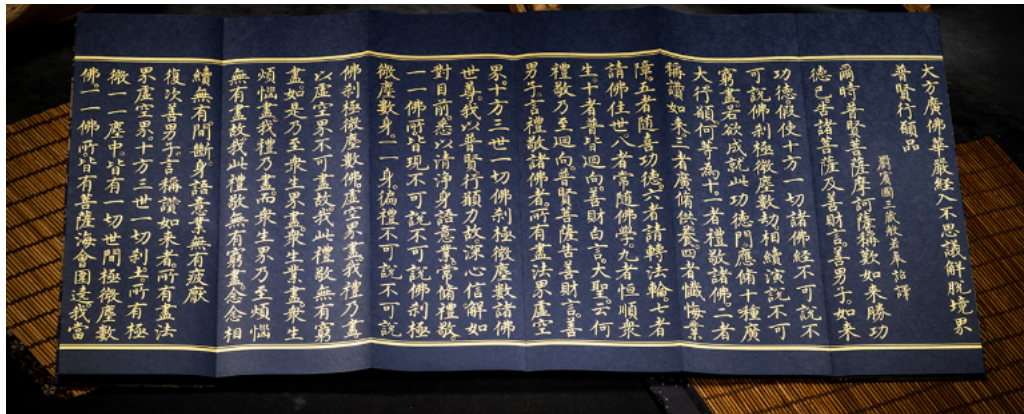 大方廣佛華嚴經入不思議解脫境界
普賢行願品
罽賓國三藏般若奉詔譯
爾時普賢菩薩摩訶薩稱歎如來勝功
德已。告諸菩薩及善財言。善男子。如來
功德。假使十方一切諸佛經不可說不
可說佛剎極微塵數劫。相續演說不可
窮盡。若欲成就此功德門。應脩十種廣
大行願。何等為十。一者禮敬諸佛。二者
稱讚如來。三者廣脩供養。四者懺悔業
障。五者隨喜功德。六者請轉法輪。七者
請佛住世。八者常隨佛學。九者恒順眾
生。十者普皆迴向。善財白言。大聖。云何
禮敬乃至迴向。普賢菩薩告善財言。善
男子。言禮敬諸佛者。所有盡法界虛空
界十方三世一切佛剎極微塵數諸佛
世尊。我以普賢行願力故。深心信解如
對目前。悉以清淨身語意業。常脩禮敬。
一一佛所。皆現不可說不可說佛剎極
微塵數身。一一身。徧禮不可說不可說
佛剎極微塵數佛。虛空界盡。我禮乃盡
以虛空界不可盡故。我此禮敬無有窮
盡。如是乃至眾生界盡。眾生業盡。眾生
煩惱盡。我禮乃盡。而眾生界乃至煩惱
無有盡故。我此禮敬無有窮盡。念念相
續無有間斷。身語意業無有疲厭
復次善男子。言稱讚如來者。所有盡法
界虛空界。十方三世一切剎土。所有極
微一一塵中。皆有一切世間極微塵數
佛。一一佛所。皆有菩薩海會圍遶。我當